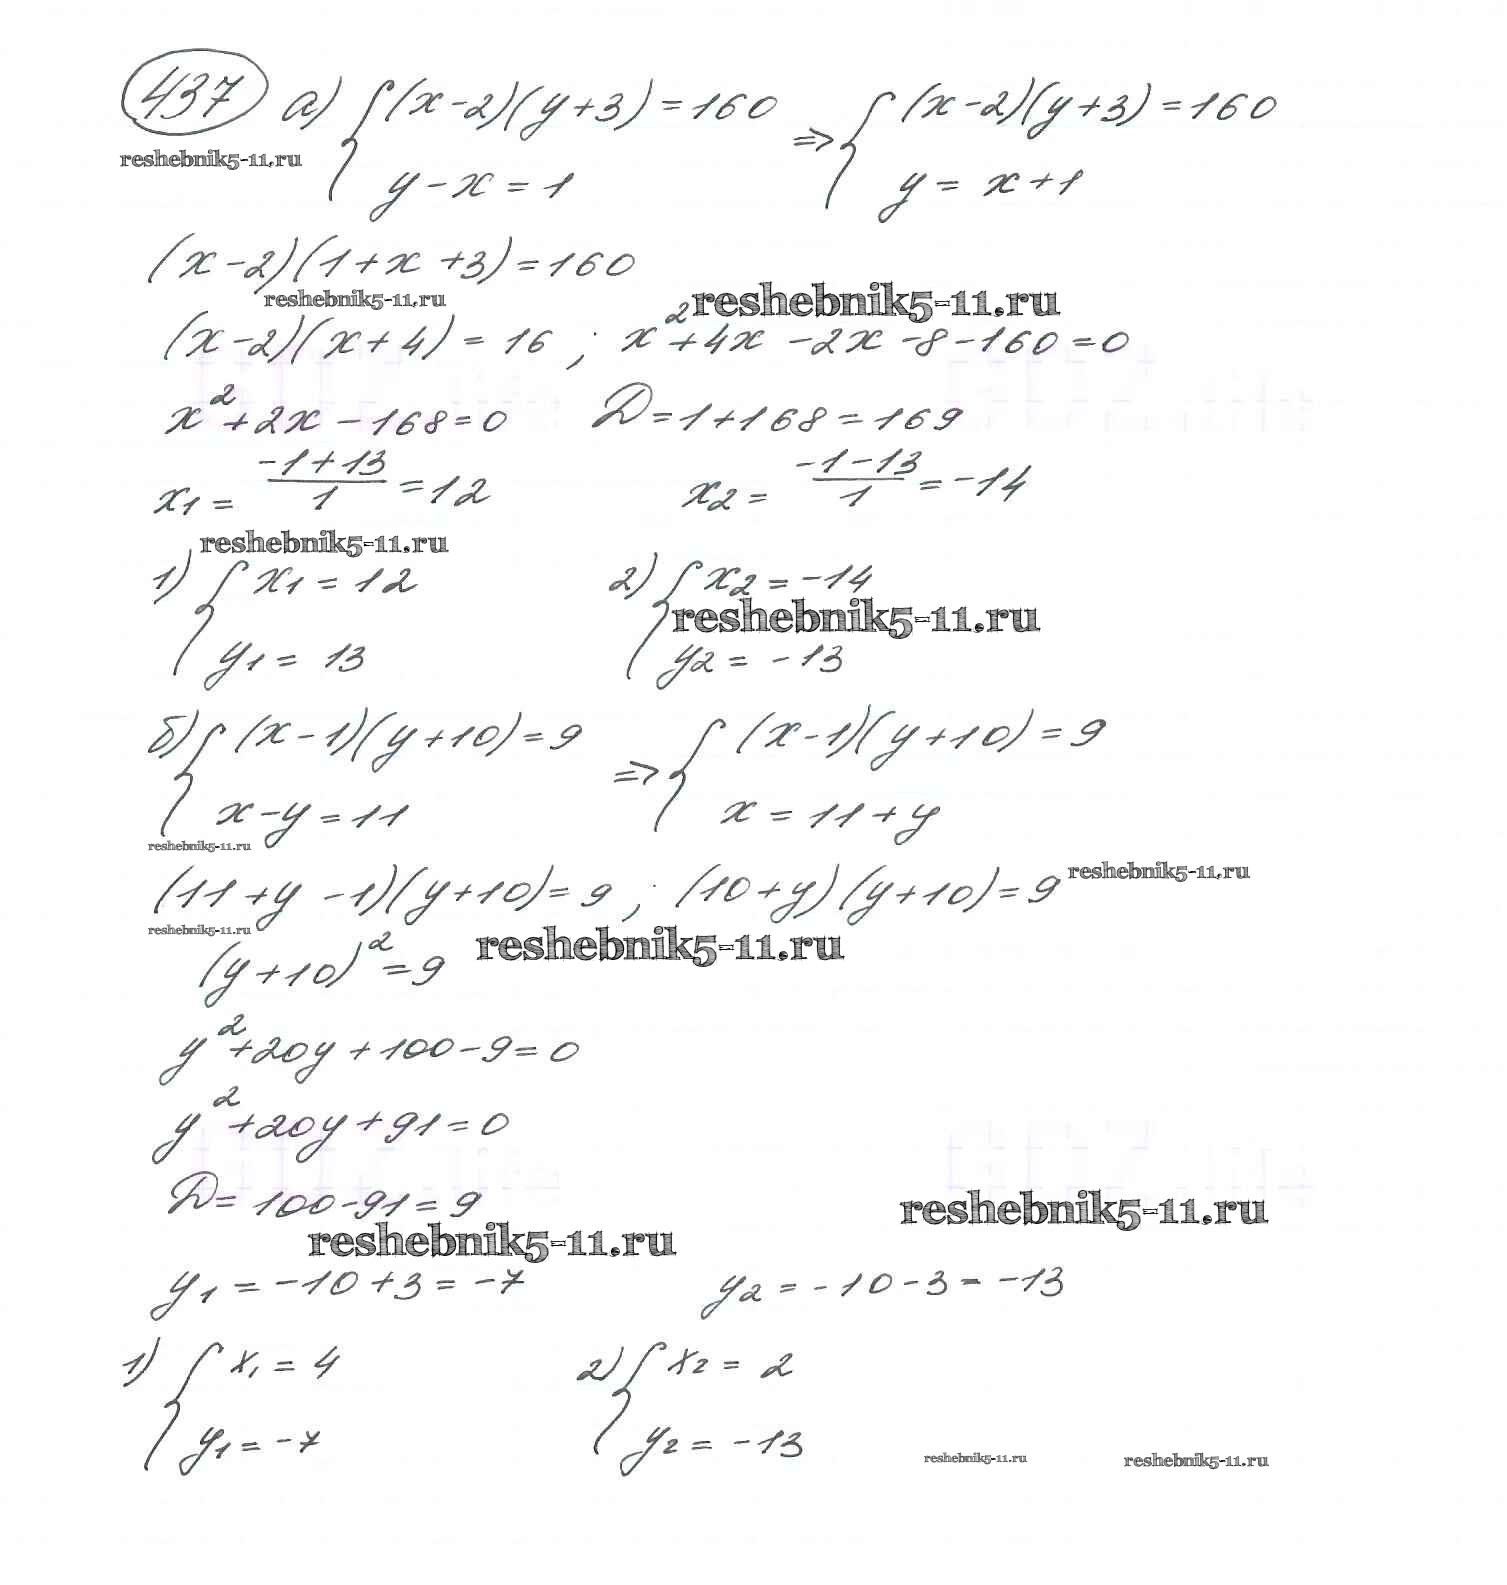 437 а) { (x-2)(y+3)=160 => { (x-2)(y+3)=160
reshebnik5-11.ru
y-x=1 y=x+1
(x-2)(1+x+3)=160
reshebnik5-11.ru reshebnik5-11.ru
(x-2)(x+4)=16 ; x²+4x-2x-8-160=0
x²+2x-168=0 D=1+168=169
x1= (-1+13)/1 =12 x2= (-1-13)/1 =-14
reshebnik5-11.ru
1) { x1=12 2) { x2=-14
reshebnik5-11.ru
y1=13 y2=-13
б) { (x-1)(y+10)=9 => { (x-1)(y+10)=9
x-y=11 x=11+y
reshebnik5-11.ru
(11+y-1)(y+10)=9 ; (10+y)(y+10)=9 reshebnik5-11.ru
reshebnik5-11.ru
(y+10)²=9 reshebnik5-11.ru
y²+20y+100-9=0
y²+20y+91=0
D=100-91=9
reshebnik5-11.ru reshebnik5-11.ru
y1=-10+3=-7 y2=-10-3=-13
1) { x1=4 2) { x2=2
y1=-7 y2=-13
reshebnik5-11.ru reshebnik5-11.ru